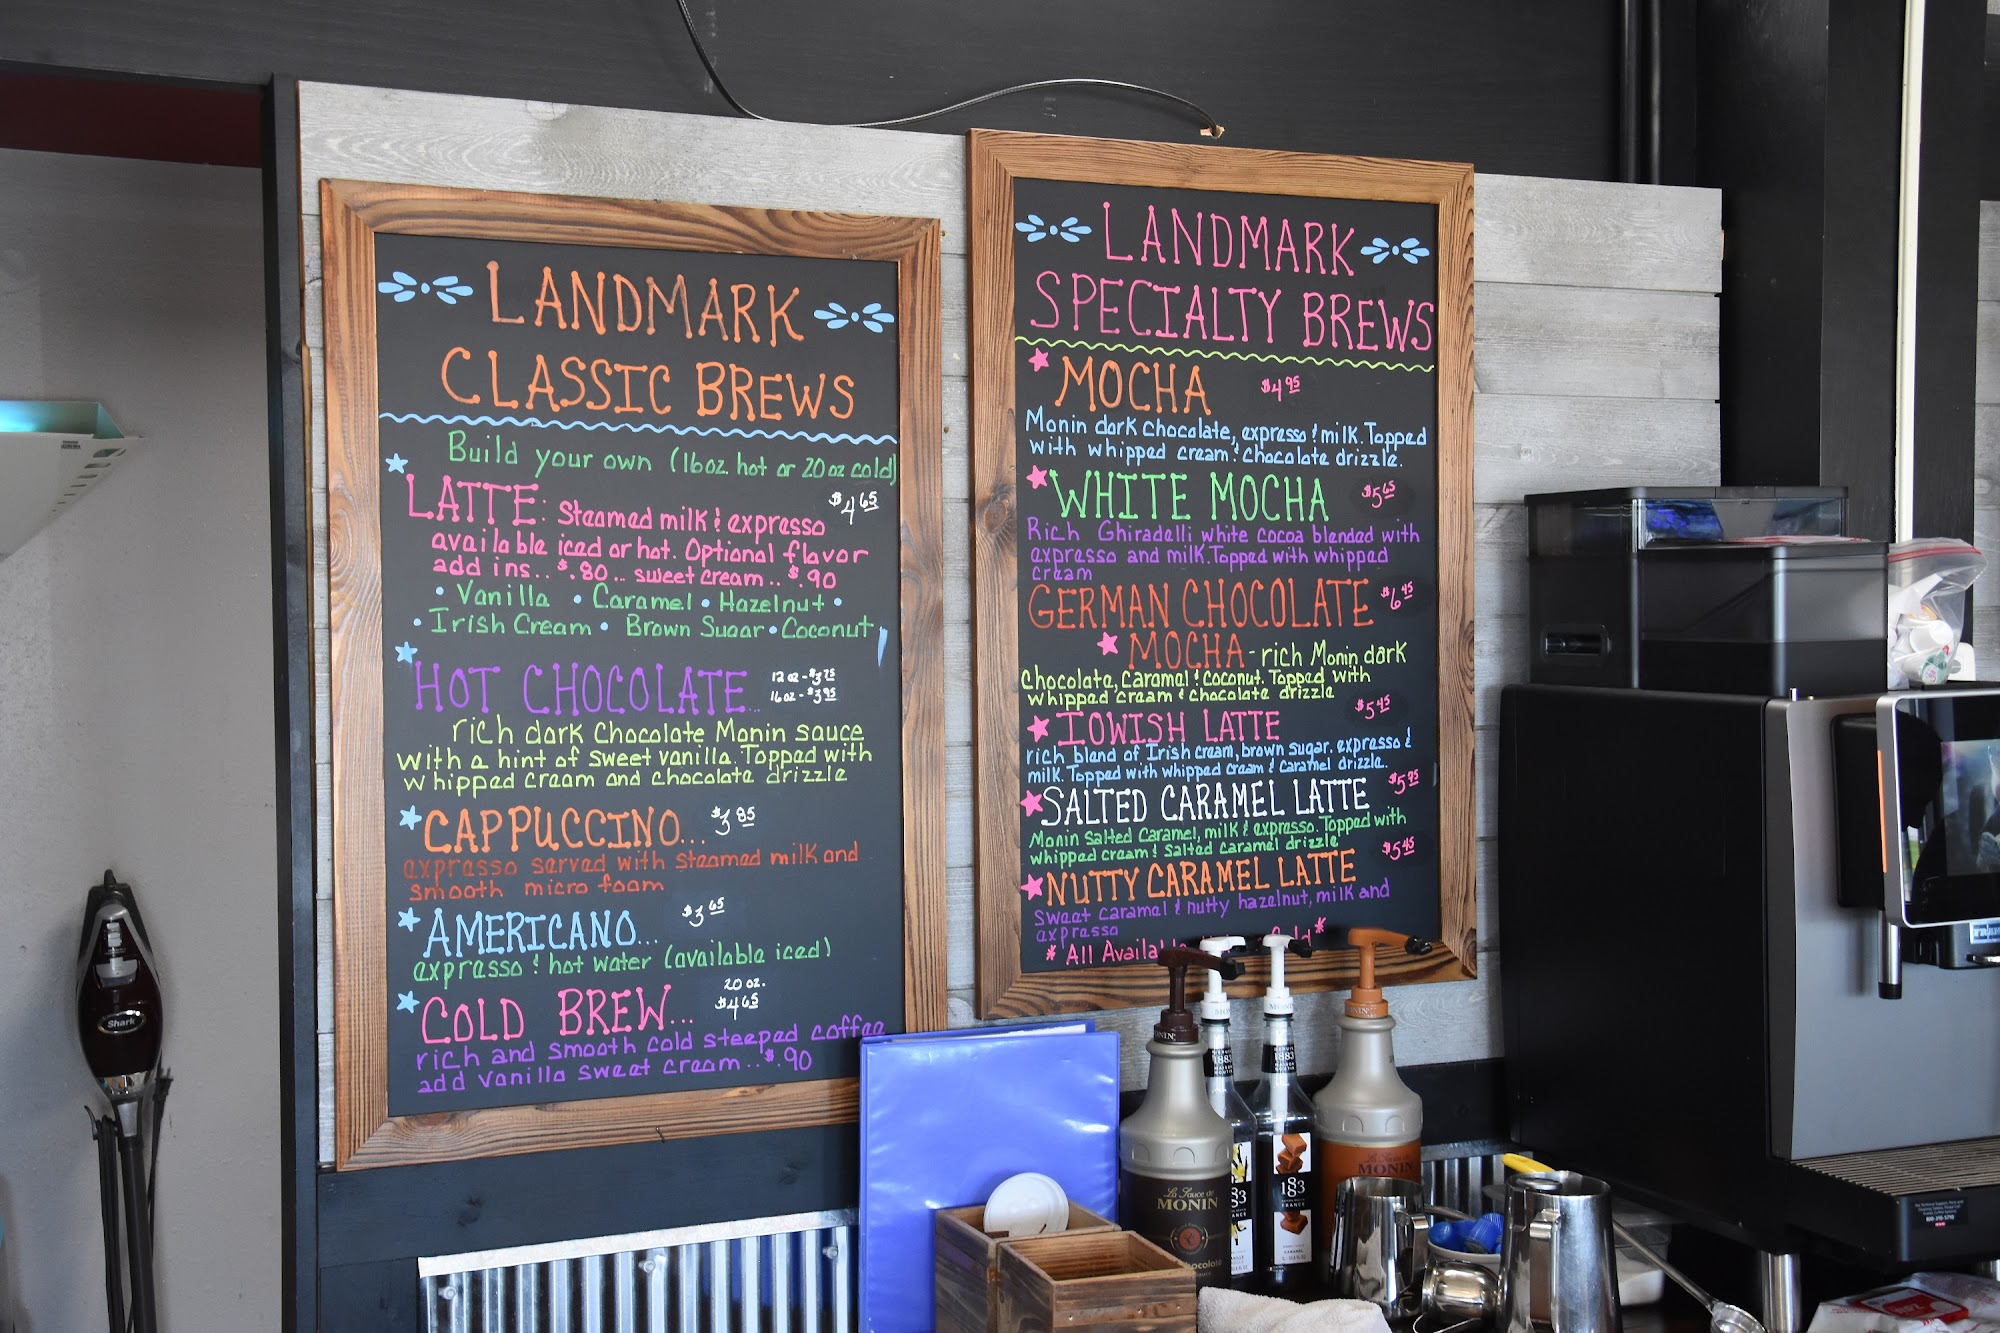 LANDMARK
CLASSIC BREWS
Build your own (16oz hot or 20oz cold)
LATTE: Steamed milk & expresso $4.65
available iced or hot. Optional flavor
add ins.. $.80 .. sweet cream .. $.90
• Vanilla • Caramel • Hazelnut •
• Irish Cream • Brown Sugar • Coconut
HOT CHOCOLATE... 12 oz - $3.75
16oz - $3.95
rich dark Chocolate Monin sauce
with a hint of sweet vanilla. Topped with
whipped cream and chocolate drizzle
CAPPUCCINO... $3.85
expresso served with steamed milk and
smooth micro foam
AMERICANO... $3.65
expresso & hot water (available iced)
COLD BREW... 20 oz. $4.65
rich and smooth cold steeped coffee
add vanilla sweet cream .. $.90
LANDMARK
SPECIALTY BREWS
MOCHA $4.95
Monin dark chocolate, expresso & milk. Topped
with whipped cream & chocolate drizzle.
WHITE MOCHA $5.65
Rich Ghiradelli white cocoa blended with
expresso and milk. Topped with whipped
cream
GERMAN CHOCOLATE $6.45
MOCHA - rich Monin dark
Chocolate, Caramel & Coconut. Topped with
whipped cream & chocolate drizzle
IOWISH LATTE $5.45
rich blend of Irish cream, brown sugar, expresso &
milk. Topped with whipped cream & caramel drizzle.
SALTED CARAMEL LATTE $5.95
Monin Salted Caramel, milk & expresso. Topped with
whipped cream & Salted caramel drizzle
NUTTY CARAMEL LATTE $5.45
Sweet caramel & nutty hazelnut, milk and
expresso
*All
Shark
La Sauce de
MONIN
1883
FRANCE
CARAMEL
La Sauce de
MONIN